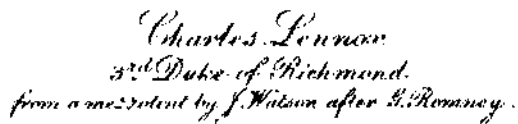 Charles Lennox
3rd Duke of Richmond.
from a mezzotint by J. Watson after G. Romney.